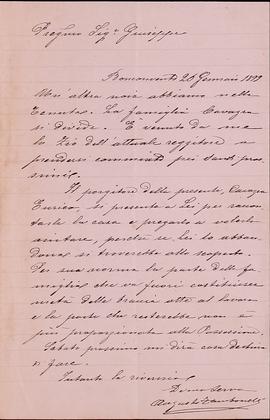 Preg.mo Sig.r Giuseppe
Buonconvento 20 Gennaio 1899
Un altra noia abbiamo nella
Tenuta. La famiglia Cavazza
si divide. È venuto da me
lo Zio dell'attuale reggitore a
prendersi commiato pei Santi pros
simi.
Il porgitore della presente, Cavazza
Enrico, si presenta a Lei per raccon
tarle la cosa e pregarlo a volerlo
aiutare, perchè se lei lo abban
dona si troverebbe allo scoperto.
Per sua norma la parte della fa
miglia che va fuori costituisce
metà delle braccia atte al lavoro
e la parte che resterebbe non è
più proporzionata alla Possessione.
Sabato prossimo mi dirà cosa destina
di fare.
Intanto la riverisco
Devmo Servo
Augusto